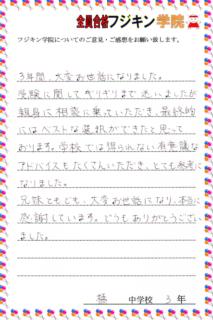 全員合格フジキン学院
フジキン学院についてのご意見・ご感想をお願い致します。
3年間、大変お世話になりました。
受験に関してギリギリまで迷いましたが
親身に相談に乗っていただき、最終的
にはベストな選択ができたと思って
おります。学校では得られない有意義な
アドバイスもたくさんいただき、とても参考に
なりました。
兄妹ともども、大変お世話になり、本当に
感謝しています。どうもありがとうござい
ました。
中学校 3年